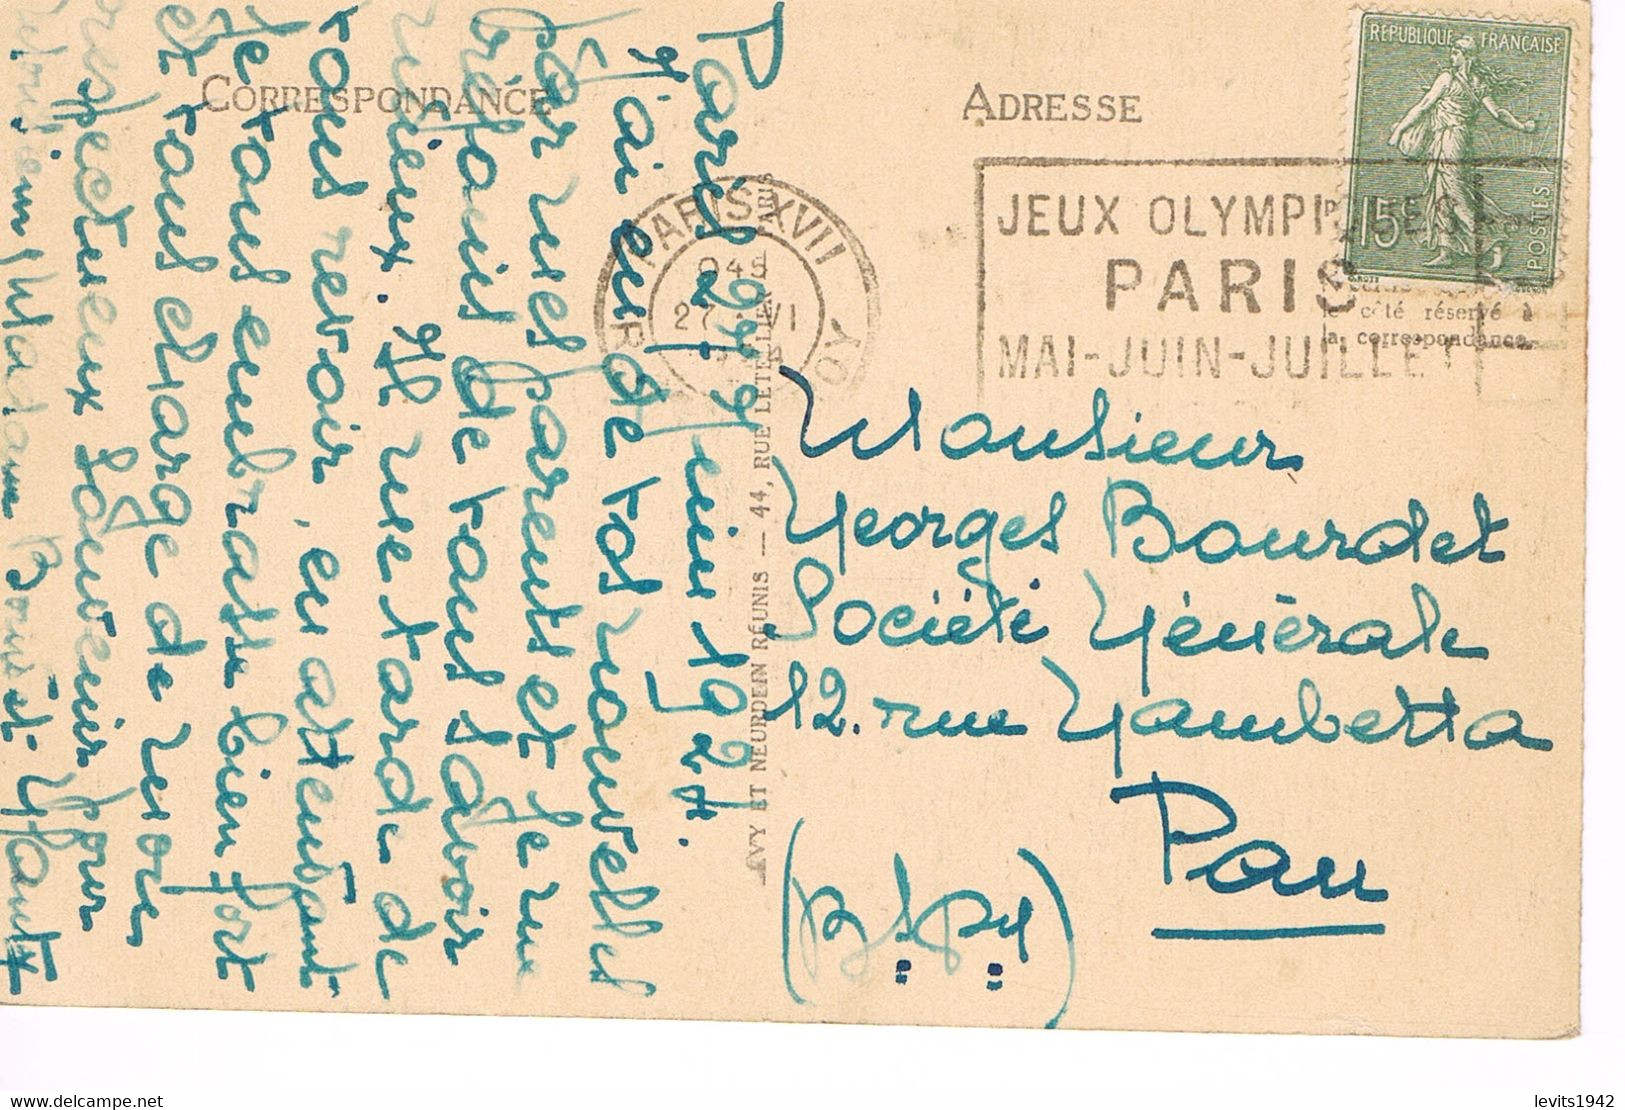 CORRESPONDANCE
Paris 27 juin 1924.
J'ai eu de tos nouvelles
par mes parents et je me
réjouis de vous savoir
mieux. Il me tarde de
vous revoir, en attendant
je vous embrasse bien fort
et vous charge de mes
respectueux souvenirs pour
Monsieur, Madame
LÉVY ET NEURDEIN RÉUNIS — 44, RUE LETELLIER, PARIS
ADRESSE
RÉPUBLIQUE FRANÇAISE
15
POSTES
PARIS XVII
27 VI
24
JEUX OLYMPIQUES
PARIS
MAI-JUIN-JUILLET
côté réservé à
la correspondance.
Monsieur
Georges Bourdet
Société Générale
12. rue Gambetta
Pau
levits1942